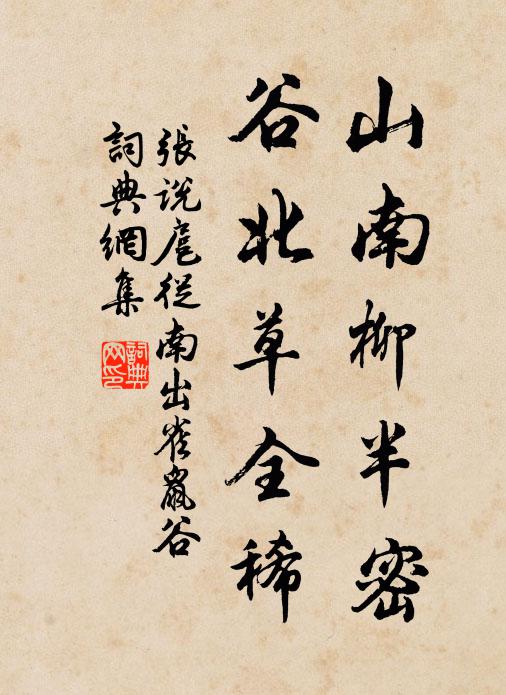 山南柳半密
谷北草全稀
張說扈從南出雀鼠谷
詞典網集
詞典
网印